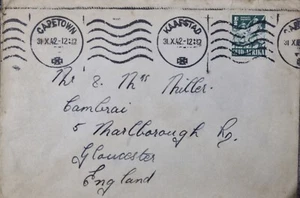 CAPETOWN
31.X.42-12:15
KAAPSTAD
31.X.42-12:15
Mr & Mrs Miller.
Cambrai
5 Marlborough Rd.
Gloucester
England